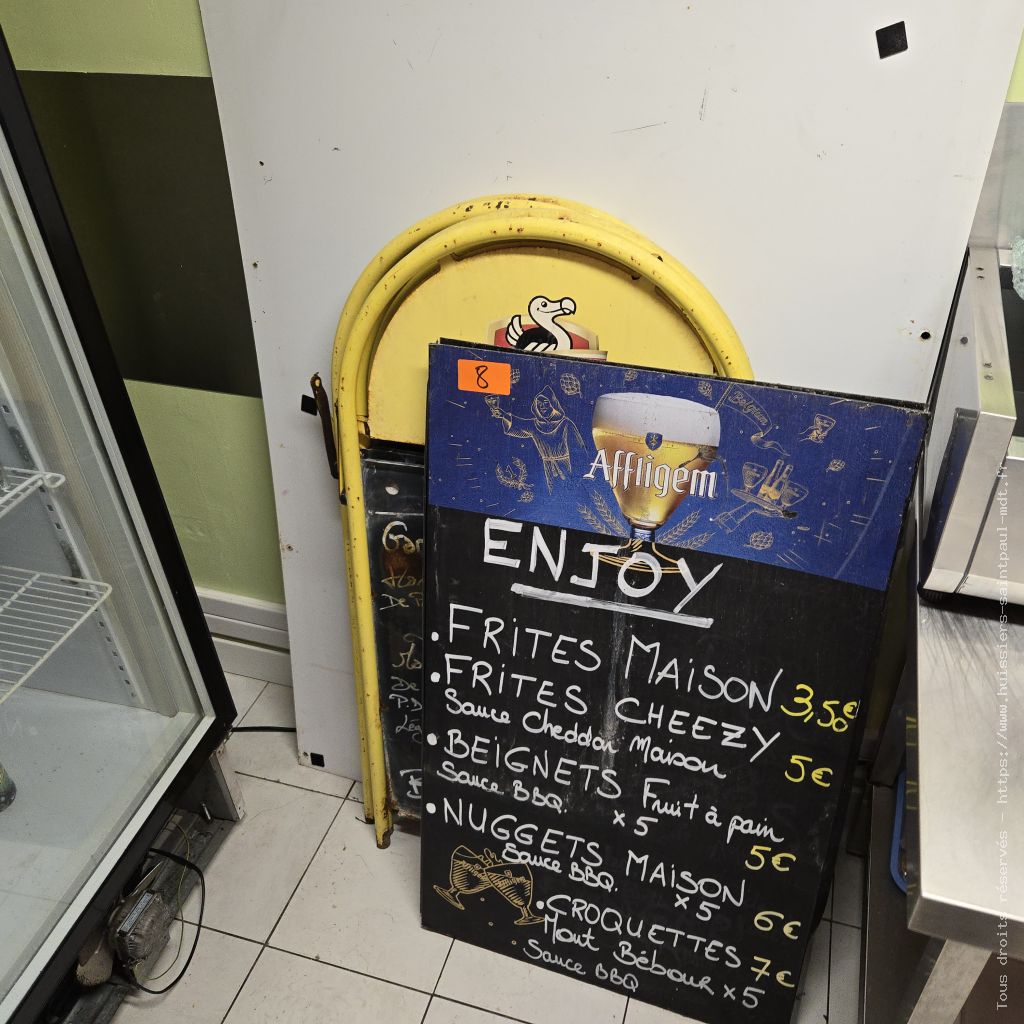 8
Belgian
Affligem
ENJOY
• FRITES MAISON 3,50€
• FRITES CHEEZY
Sauce Cheddar Maison 5€
• BEIGNETS Fruit à pain
Sauce BBQ. x5 5€
• NUGGETS MAISON
Sauce BBQ. x5 6€
• CROQUETTES
Mont Bébour x5 7€
Sauce BBQ
De
P.D
Lég
Tous droits réservés - https://www.huissiers-saintpaul-mdt.fr